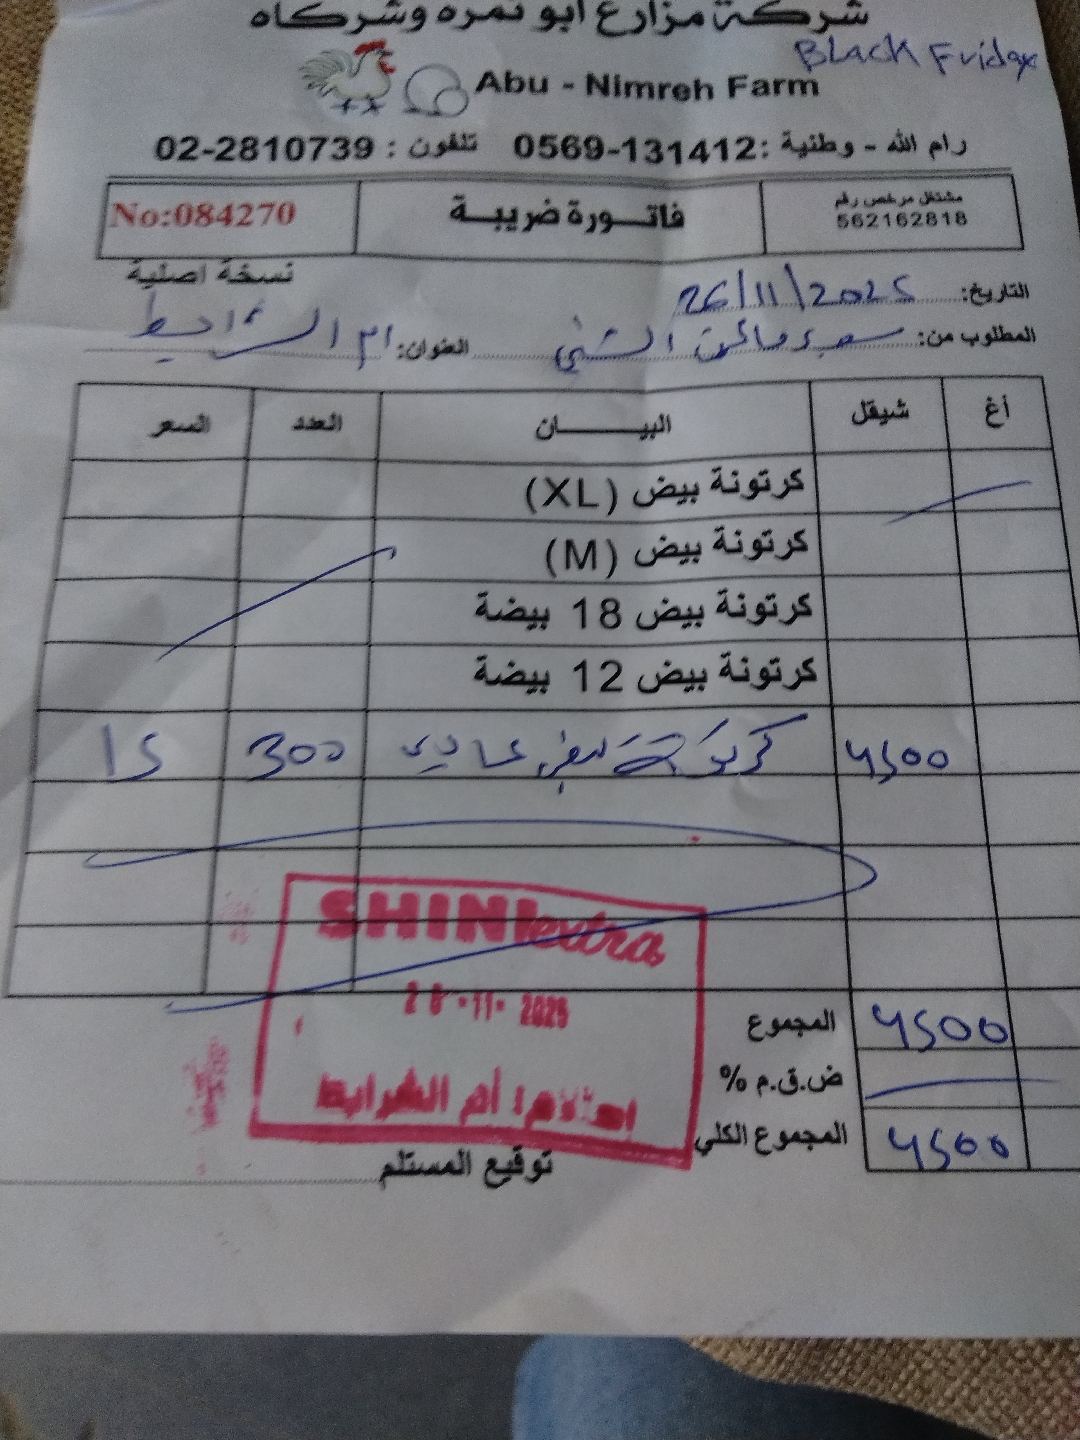 شركة مزارع ابو نمره وشركاه
Black Friday
Abu - Nimreh Farm
رام الله - وطنية :0569-131412 تلفون : 02-2810739
مشتغل مرخص رقم
562162818
فاتورة ضريبة
No:084270
نسخة اصلية
التاريخ: 26/11/2025
المطلوب من: الشني العنوان: ام الشرايط
أغ شيقل البيـــــان العدد السعر
كرتونة بيض (XL)
كرتونة بيض (M)
كرتونة بيض 18 بيضة
كرتونة بيض 12 بيضة
4500 كرتونة بيض عادي 300 15
SHINI extra
11. 2025
استلام: أم الشرايط
المجموع 4500
ض.ق.م %
المجموع الكلي 4500
توقيع المستلم